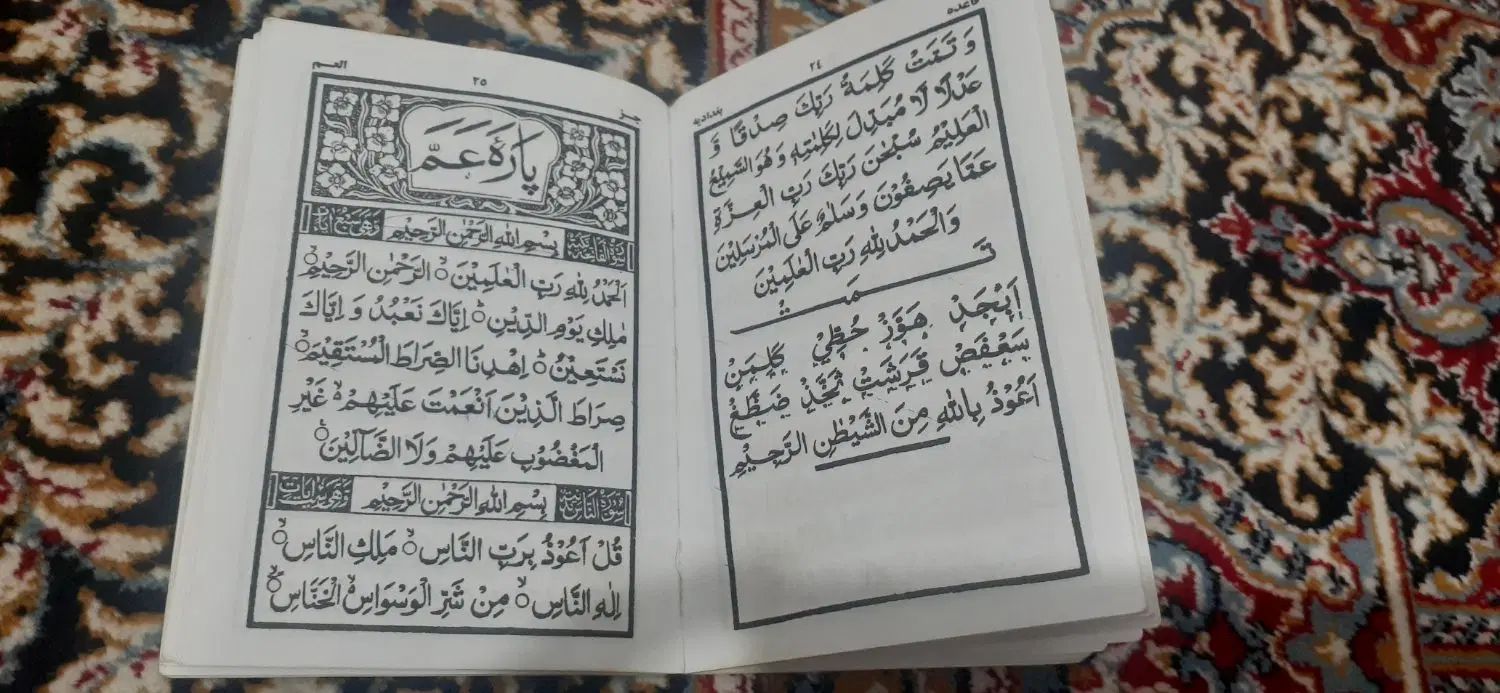 قاعده
٢٤
بغدادیه
وَ تَمَّتْ كَلِمَةُ رَبِّكَ صِدْقًا وَّ
عَدْلًا لَا مُبَدِّلَ لِكَلِمٰتِهٖ وَهُوَ السَّمِيْعُ
الْعَلِيْمُ سُبْحٰنَ رَبِّكَ رَبِّ الْعِزَّةِ
عَمَّا يَصِفُوْنَ وَسَلٰمٌ عَلَى الْمُرْسَلِيْنَ
وَالْحَمْدُ لِلّٰهِ رَبِّ الْعٰلَمِيْنَ
تَمَّتْ
اَبْجَدْ هَوَّزْ حُطِّيْ كَلِمَنْ
سَعْفَصْ قَرَشَتْ ثَخَّذْ ضَظَّغْ
اَعُوْذُ بِاللّٰهِ مِنَ الشَّيْطٰنِ الرَّجِيْمِ
جز
٢٥
العم
پَارَهٔ عَمَّ
سورة الفاتحة مكية بِسْمِ اللّٰهِ الرَّحْمٰنِ الرَّحِيْمِ وهي سبع آيات
اَلْحَمْدُ لِلّٰهِ رَبِّ الْعٰلَمِيْنَ الرَّحْمٰنِ الرَّحِيْمِ
مٰلِكِ يَوْمِ الدِّيْنِ اِيَّاكَ نَعْبُدُ وَ اِيَّاكَ
نَسْتَعِيْنُ اِهْدِنَا الصِّرَاطَ الْمُسْتَقِيْمَ
صِرَاطَ الَّذِيْنَ اَنْعَمْتَ عَلَيْهِمْ غَيْرِ
الْمَغْضُوْبِ عَلَيْهِمْ وَلَا الضَّآلِّيْنَ
سورة الناس بِسْمِ اللّٰهِ الرَّحْمٰنِ الرَّحِيْمِ وهي ست آيات
قُلْ اَعُوْذُ بِرَبِّ النَّاسِ مَلِكِ النَّاسِ
اِلٰهِ النَّاسِ مِنْ شَرِّ الْوَسْوَاسِ الْخَنَّاسِ